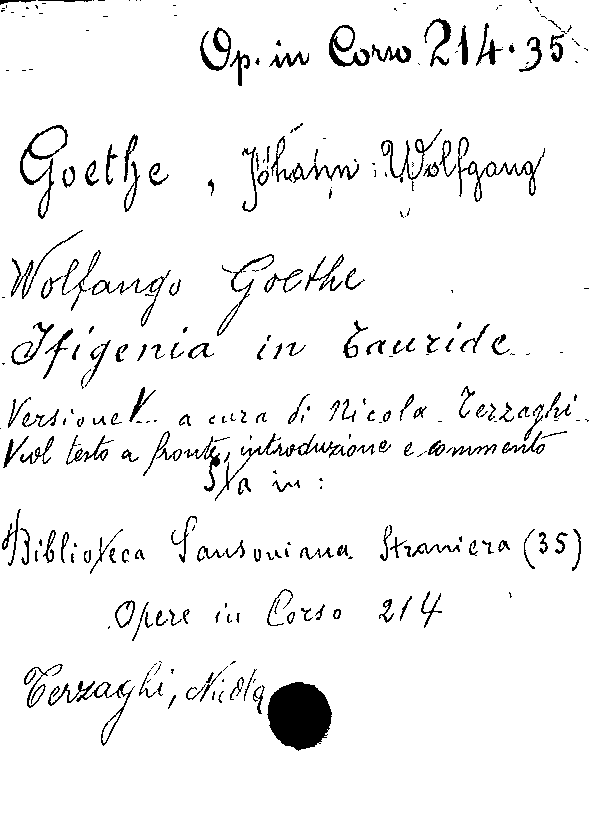 Op. in Corso 214.35
Goethe, Johann Wolfgang
Wolfango Goethe
Ifigenia in Tauride
Versione V a cura di Nicola Terzaghi
V col testo a fronte, introduzione e commento
Sta in:
Biblioteca Sansoniana Straniera (35)
Opere in Corso 214
Terzaghi, Nicola